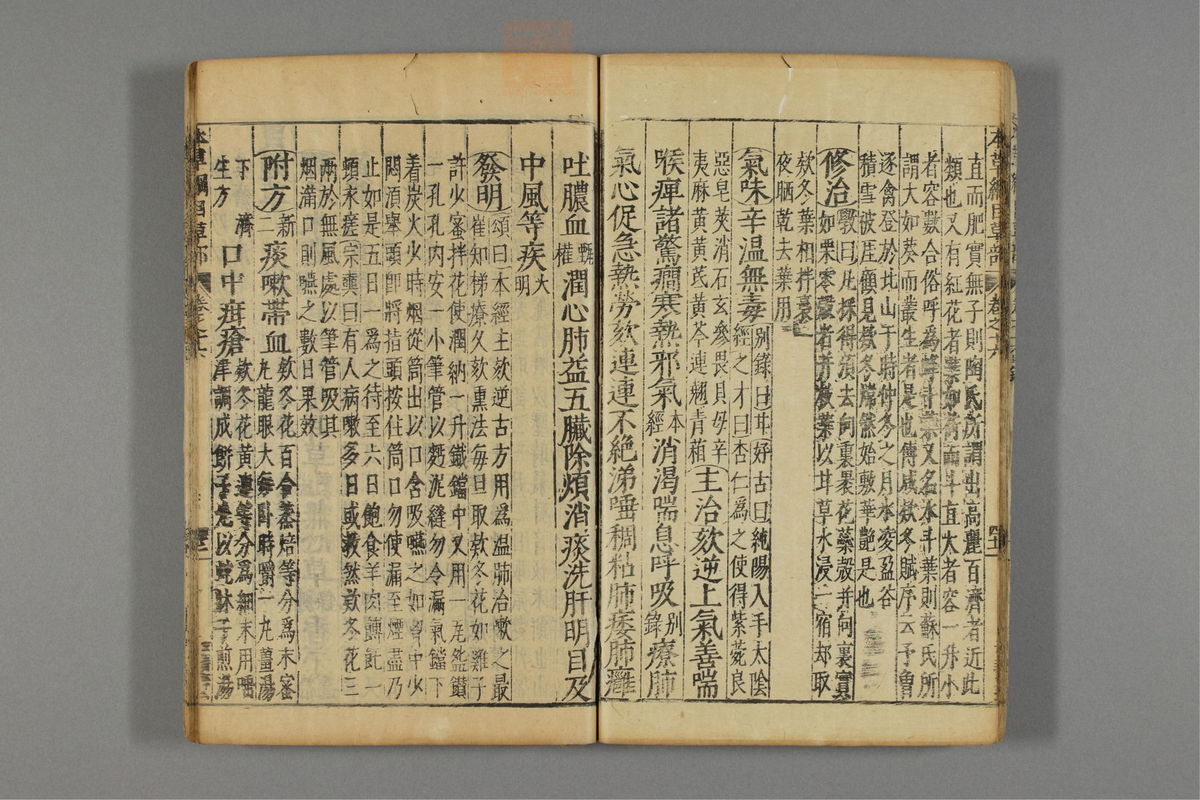 直而肥實無子則陶氏所謂出高麗百濟者近此
類也又有紅花者葉如荷而斗直大者容一升小
者容數合俗呼爲蜂斗葉又名水斗葉則蘇氏所
謂大如葵而叢生者是也傅咸款冬賦序云予曾
逐禽登於北山于時仲冬之月氷凌盈谷
積雪被崖顧見款冬煒然始敷華艷是也
修治
斅曰凡採得須去向裏裹花蘂殼并向裏實
如粟零殼者并枝葉以甘草水浸一宿却取
款冬葉相拌裛
夜晒乾去葉用
氣味辛温無毒
别録曰甘好古曰純陽入手太陰
經之才曰杏仁爲之使得紫菀良
惡皂莢消石玄參畏貝母辛
夷麻黄黄芪黄芩連翹青葙
主治欬逆上氣善喘
喉痺諸驚癇寒熱邪氣本經消渴喘息呼吸别錄療肺
氣心促急熱勞欬連連不絶涕唾稠粘肺痿肺癰
吐膿血甄權潤心肺益五臟除煩消痰洗肝明目及
中風等疾大明
發明
頌曰本經主欬逆古方用爲温肺治嗽之最
崔知悌療久欬熏法每旦取款冬花如雞子
許少蜜拌花使潤納一升鐵鐺中又用一瓦盌鑽
一孔孔內安一小筆管以麪泥縫勿令漏氣鐺下
着炭火少時烟從筒出以口含吸嚥之如胸中少
悶須舉頭卽將指頭按住筒口勿使漏至煙盡乃
止如是五日一爲之待至六日飽食羊肉餺飥一
頓永瘥宗奭曰有人病嗽多日或教然款冬花三
兩於無風處以筆管吸其
烟滿口則嚥之數日果效
附方新二
痰嗽帶血
款冬花百合蒸焙等分爲末蜜
丸龍眼大每卧時嚼一丸薑湯
下濟生方
口中疳瘡
款冬花黄連等分爲細末用唾
津調成餠子先以蛇牀子煎湯
本草綱目草部
卷之十六
本草綱目草部
卷之十六